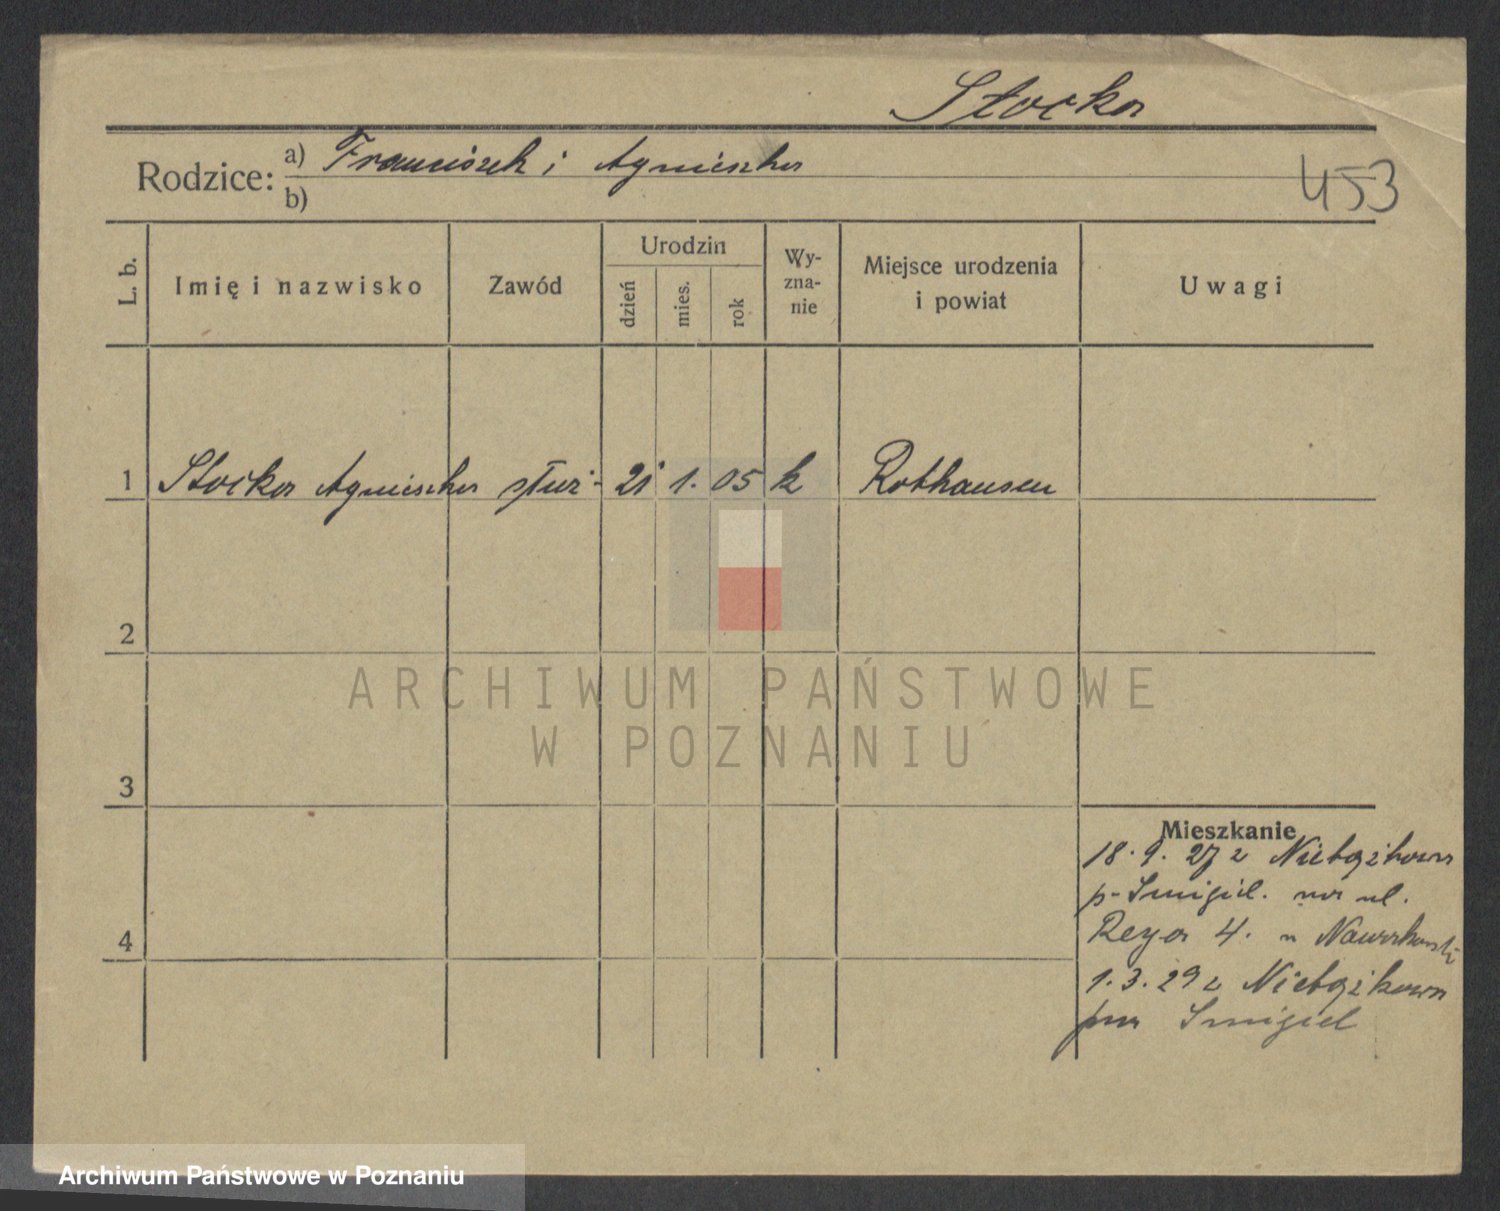 Stocka
Rodzice: a) Franciszek i Agnieszka
b)
453
L. b.
Imię i nazwisko
Zawód
Urodzin
dzień
mies.
rok
Wy-
zna-
nie
Miejsce urodzenia
i powiat
Uwagi
1 Stocka Agnieszka służ- 21 1. 05 k Rothausen
2
ARCHIWUM PAŃSTWOWE
W POZNANIU
3
Mieszkanie
18. 9. 27 z Nietążkowa
p- Śmigiel. na ul.
4
Reya 4. u Nawrkowski
1. 3. 29 z Nietążkowa
pow Śmigiel
Archiwum Państwowe w Poznaniu